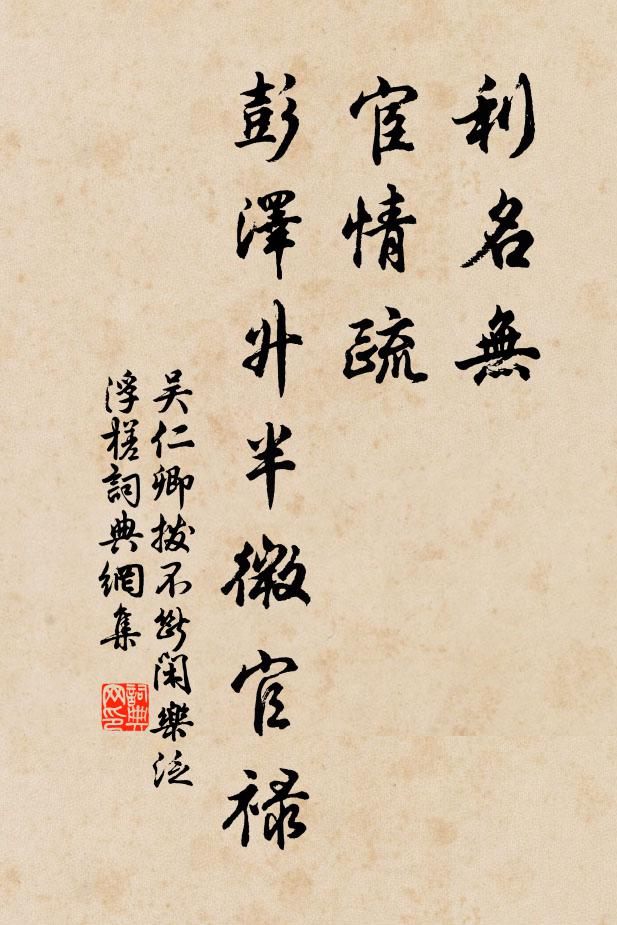 利名無
宦情疏
彭澤升半微官禄
吴仁卿撥不斷閑樂泛
浮槎詞典網集
詞典网印